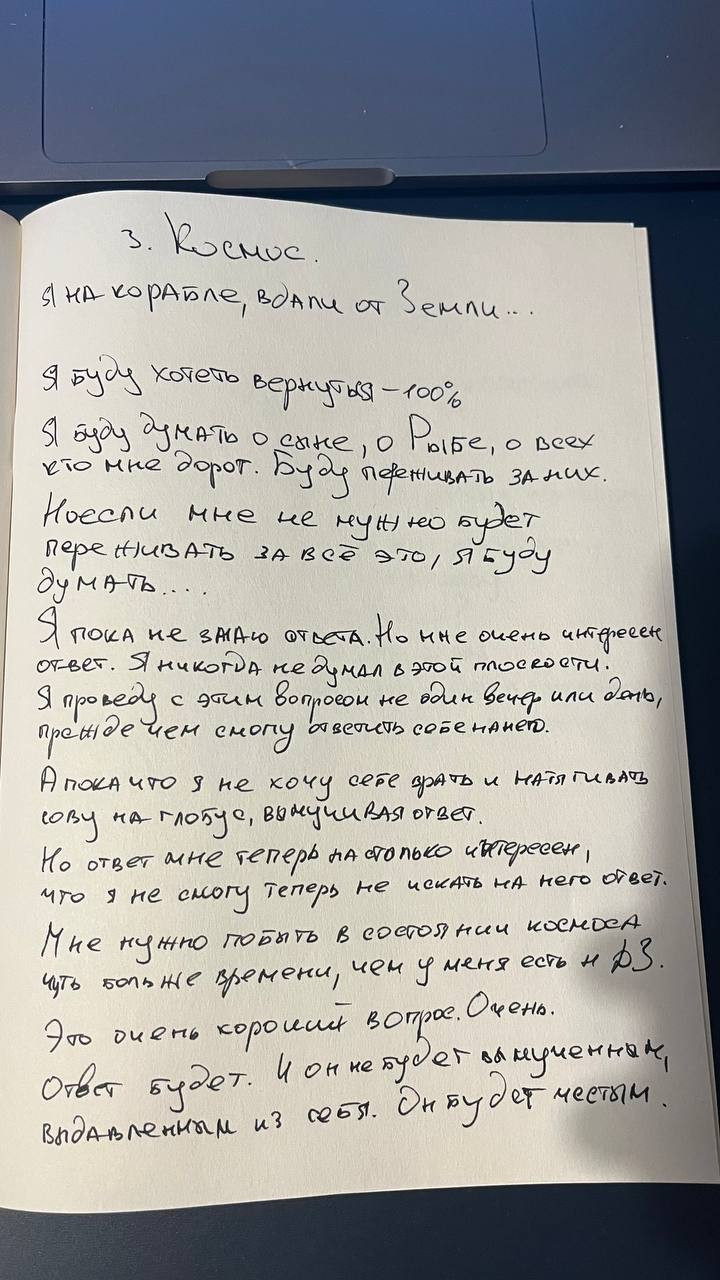 3. Космос.
Я на корабле, вдали от Земли...
Я буду хотеть вернуться - 100%
Я буду думать о сыне, о Рыбе, о всех
кто мне дорог. Буду переживать за них.
Но если мне не нужно будет
переживать за всё это, я буду
думать....
Я пока не знаю ответа. Но мне очень интересен
ответ. Я никогда не думал в этой плоскости.
Я проведу с этим вопросом не один вечер или день,
прежде чем смогу ответить себе на него.
А пока что я не хочу себе врать и натягивать
сову на глобус, вымучивая ответ.
Но ответ мне теперь настолько интересен,
что я не смогу теперь не искать на него ответ.
Мне нужно побыть в состоянии космоса
чуть больше времени, чем у меня есть на ДЗ.
Это очень хороший вопрос. Очень.
Ответ будет. И он не будет вымученным,
выдавленным из себя. Он будет честым.